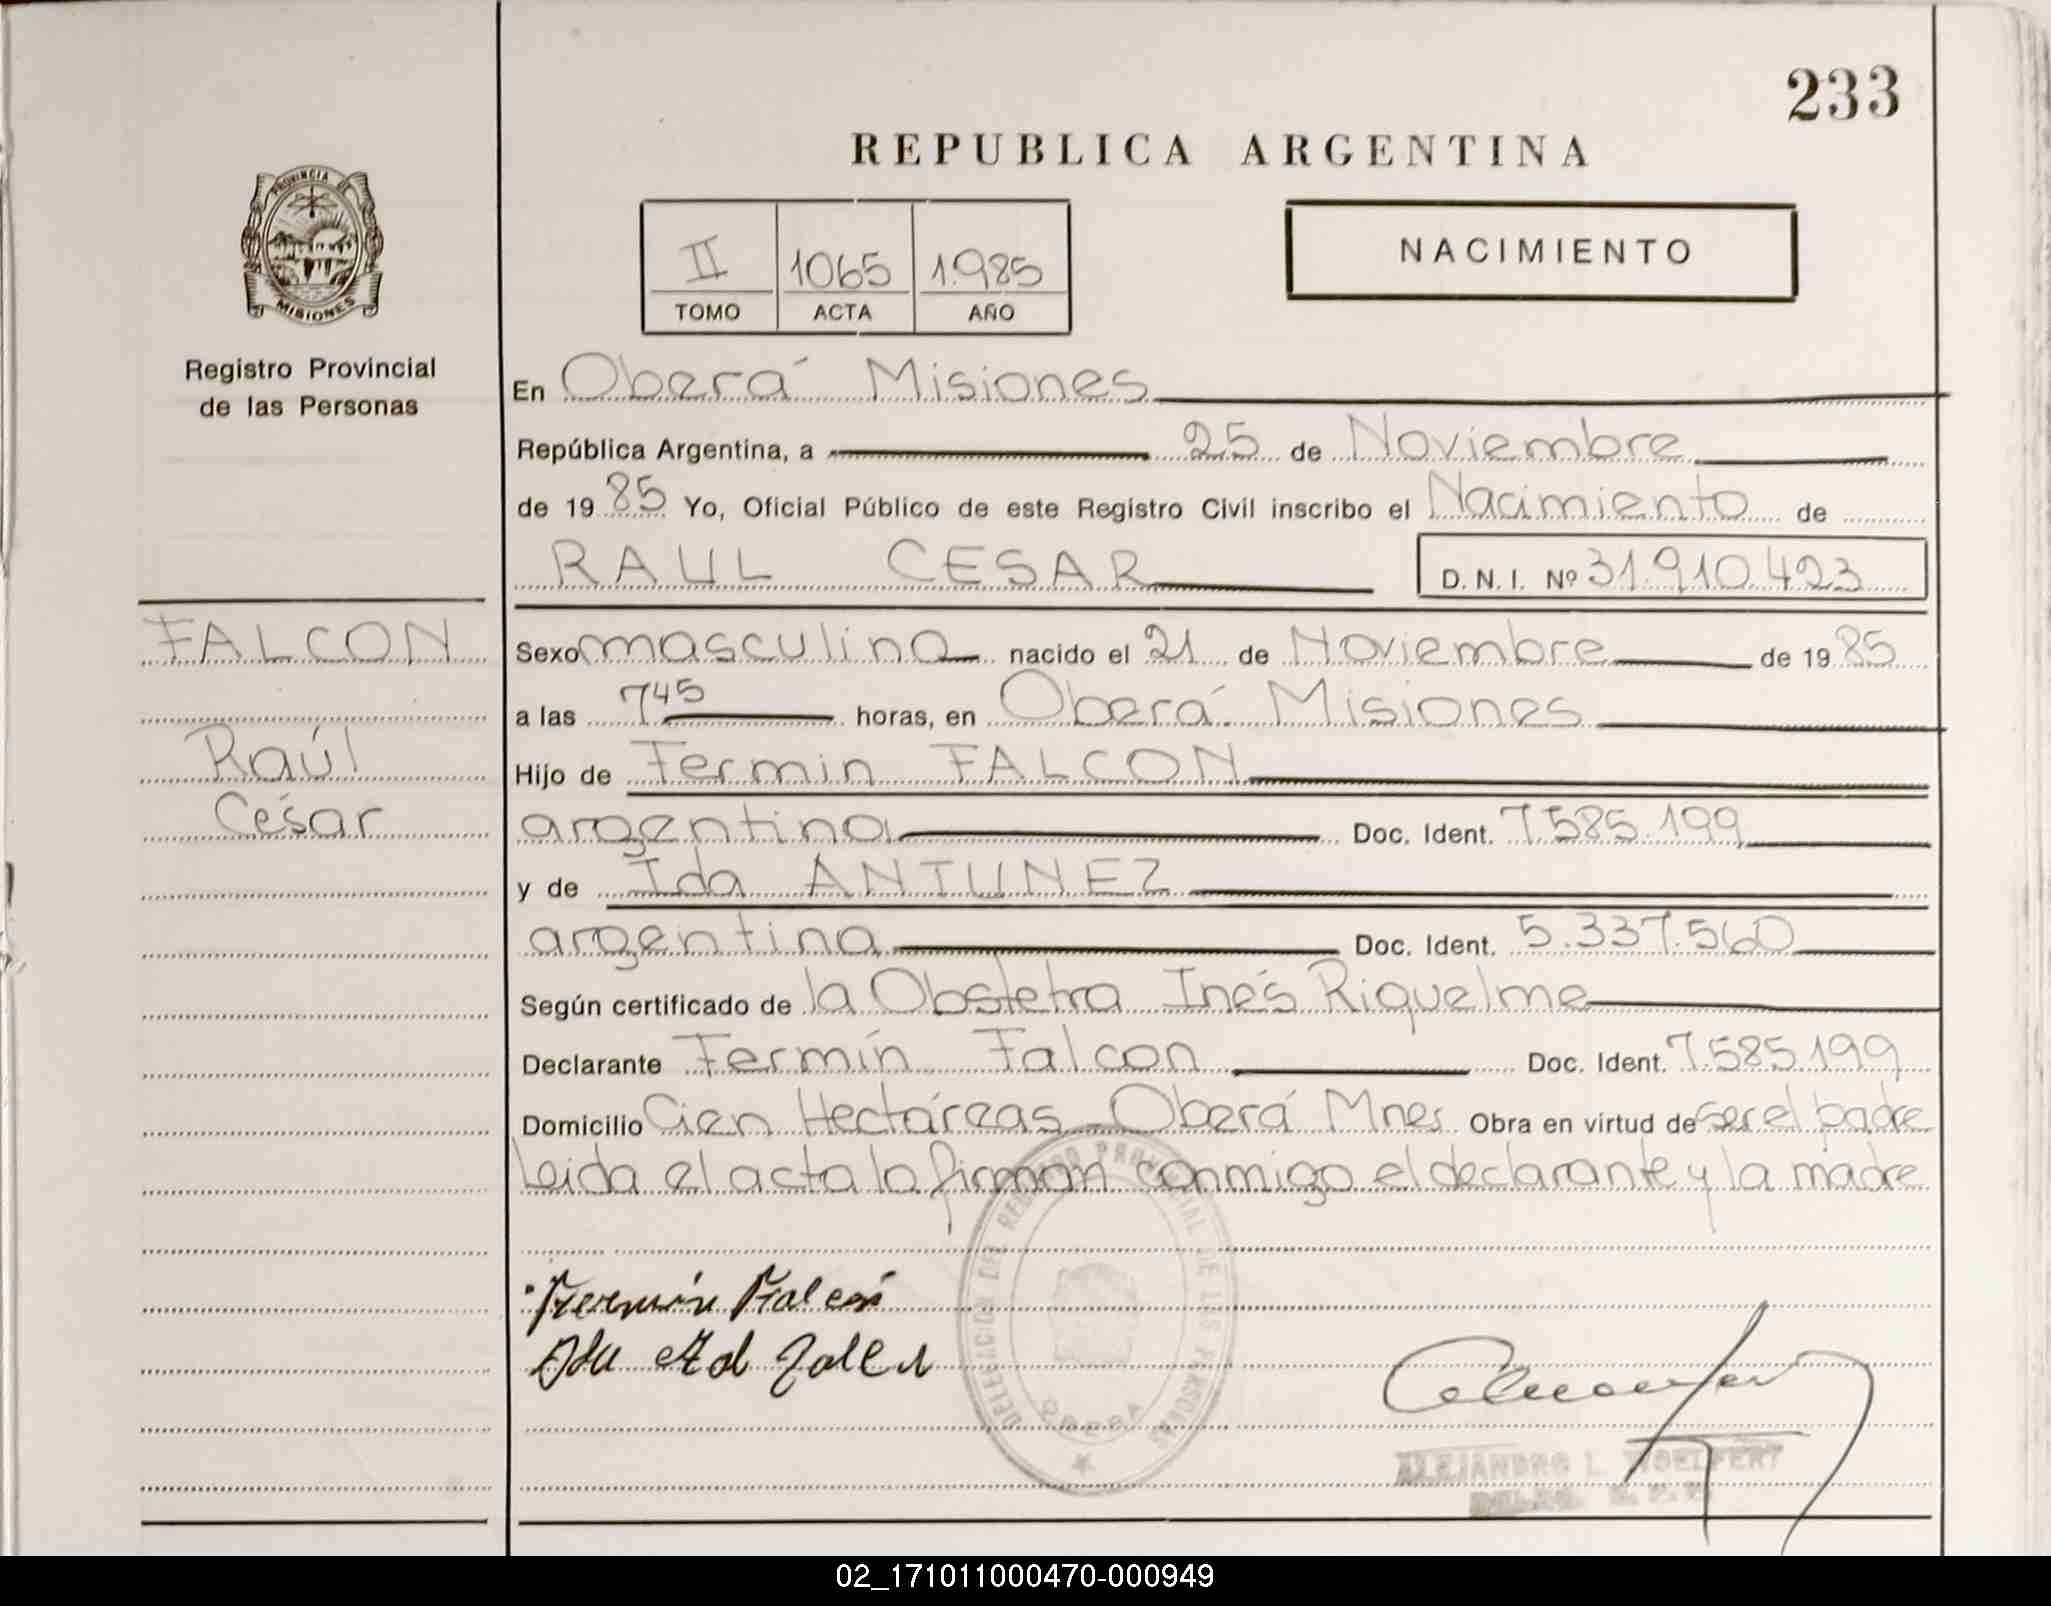 233
REPUBLICA ARGENTINA
PROVINCIA DE
MISIONES
Registro Provincial
de las Personas
II 1065 1.985
TOMO ACTA AÑO
NACIMIENTO
En Oberá Misiones
República Argentina, a 25 de Noviembre
de 19 85 Yo, Oficial Público de este Registro Civil inscribo el Nacimiento de
RAUL CESAR D. N. I. Nº 31.910.423
FALCON
Raúl
César
Sexo masculino nacido el 21 de Noviembre de 19 85
a las 7 45 horas, en Oberá Misiones
Hijo de Fermin FALCON
argentino Doc. Ident. 7.585.199
y de Ida ANTUNEZ
argentina Doc. Ident. 5.337.560
Según certificado de la Obstetra Inés Riquelme
Declarante Fermín Falcon Doc. Ident. 7.585.199
Domicilio Cien Hectáreas Oberá Mnes Obra en virtud de ser el padre
Leida el acta la firman conmigo el declarante y la madre
DELEGACION DEL REGISTRO PROVINCIAL DE LAS PERSONAS
OBERA
Fermín Falcón
ALEJANDRO L.
02_171011000470-000949